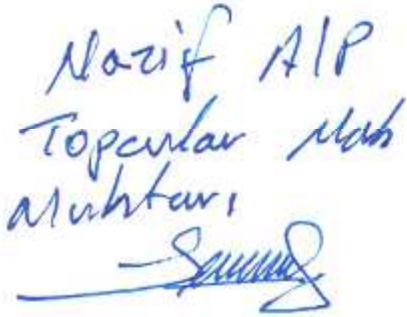 Nazif Alp
Topcular Mah
Muhtarı